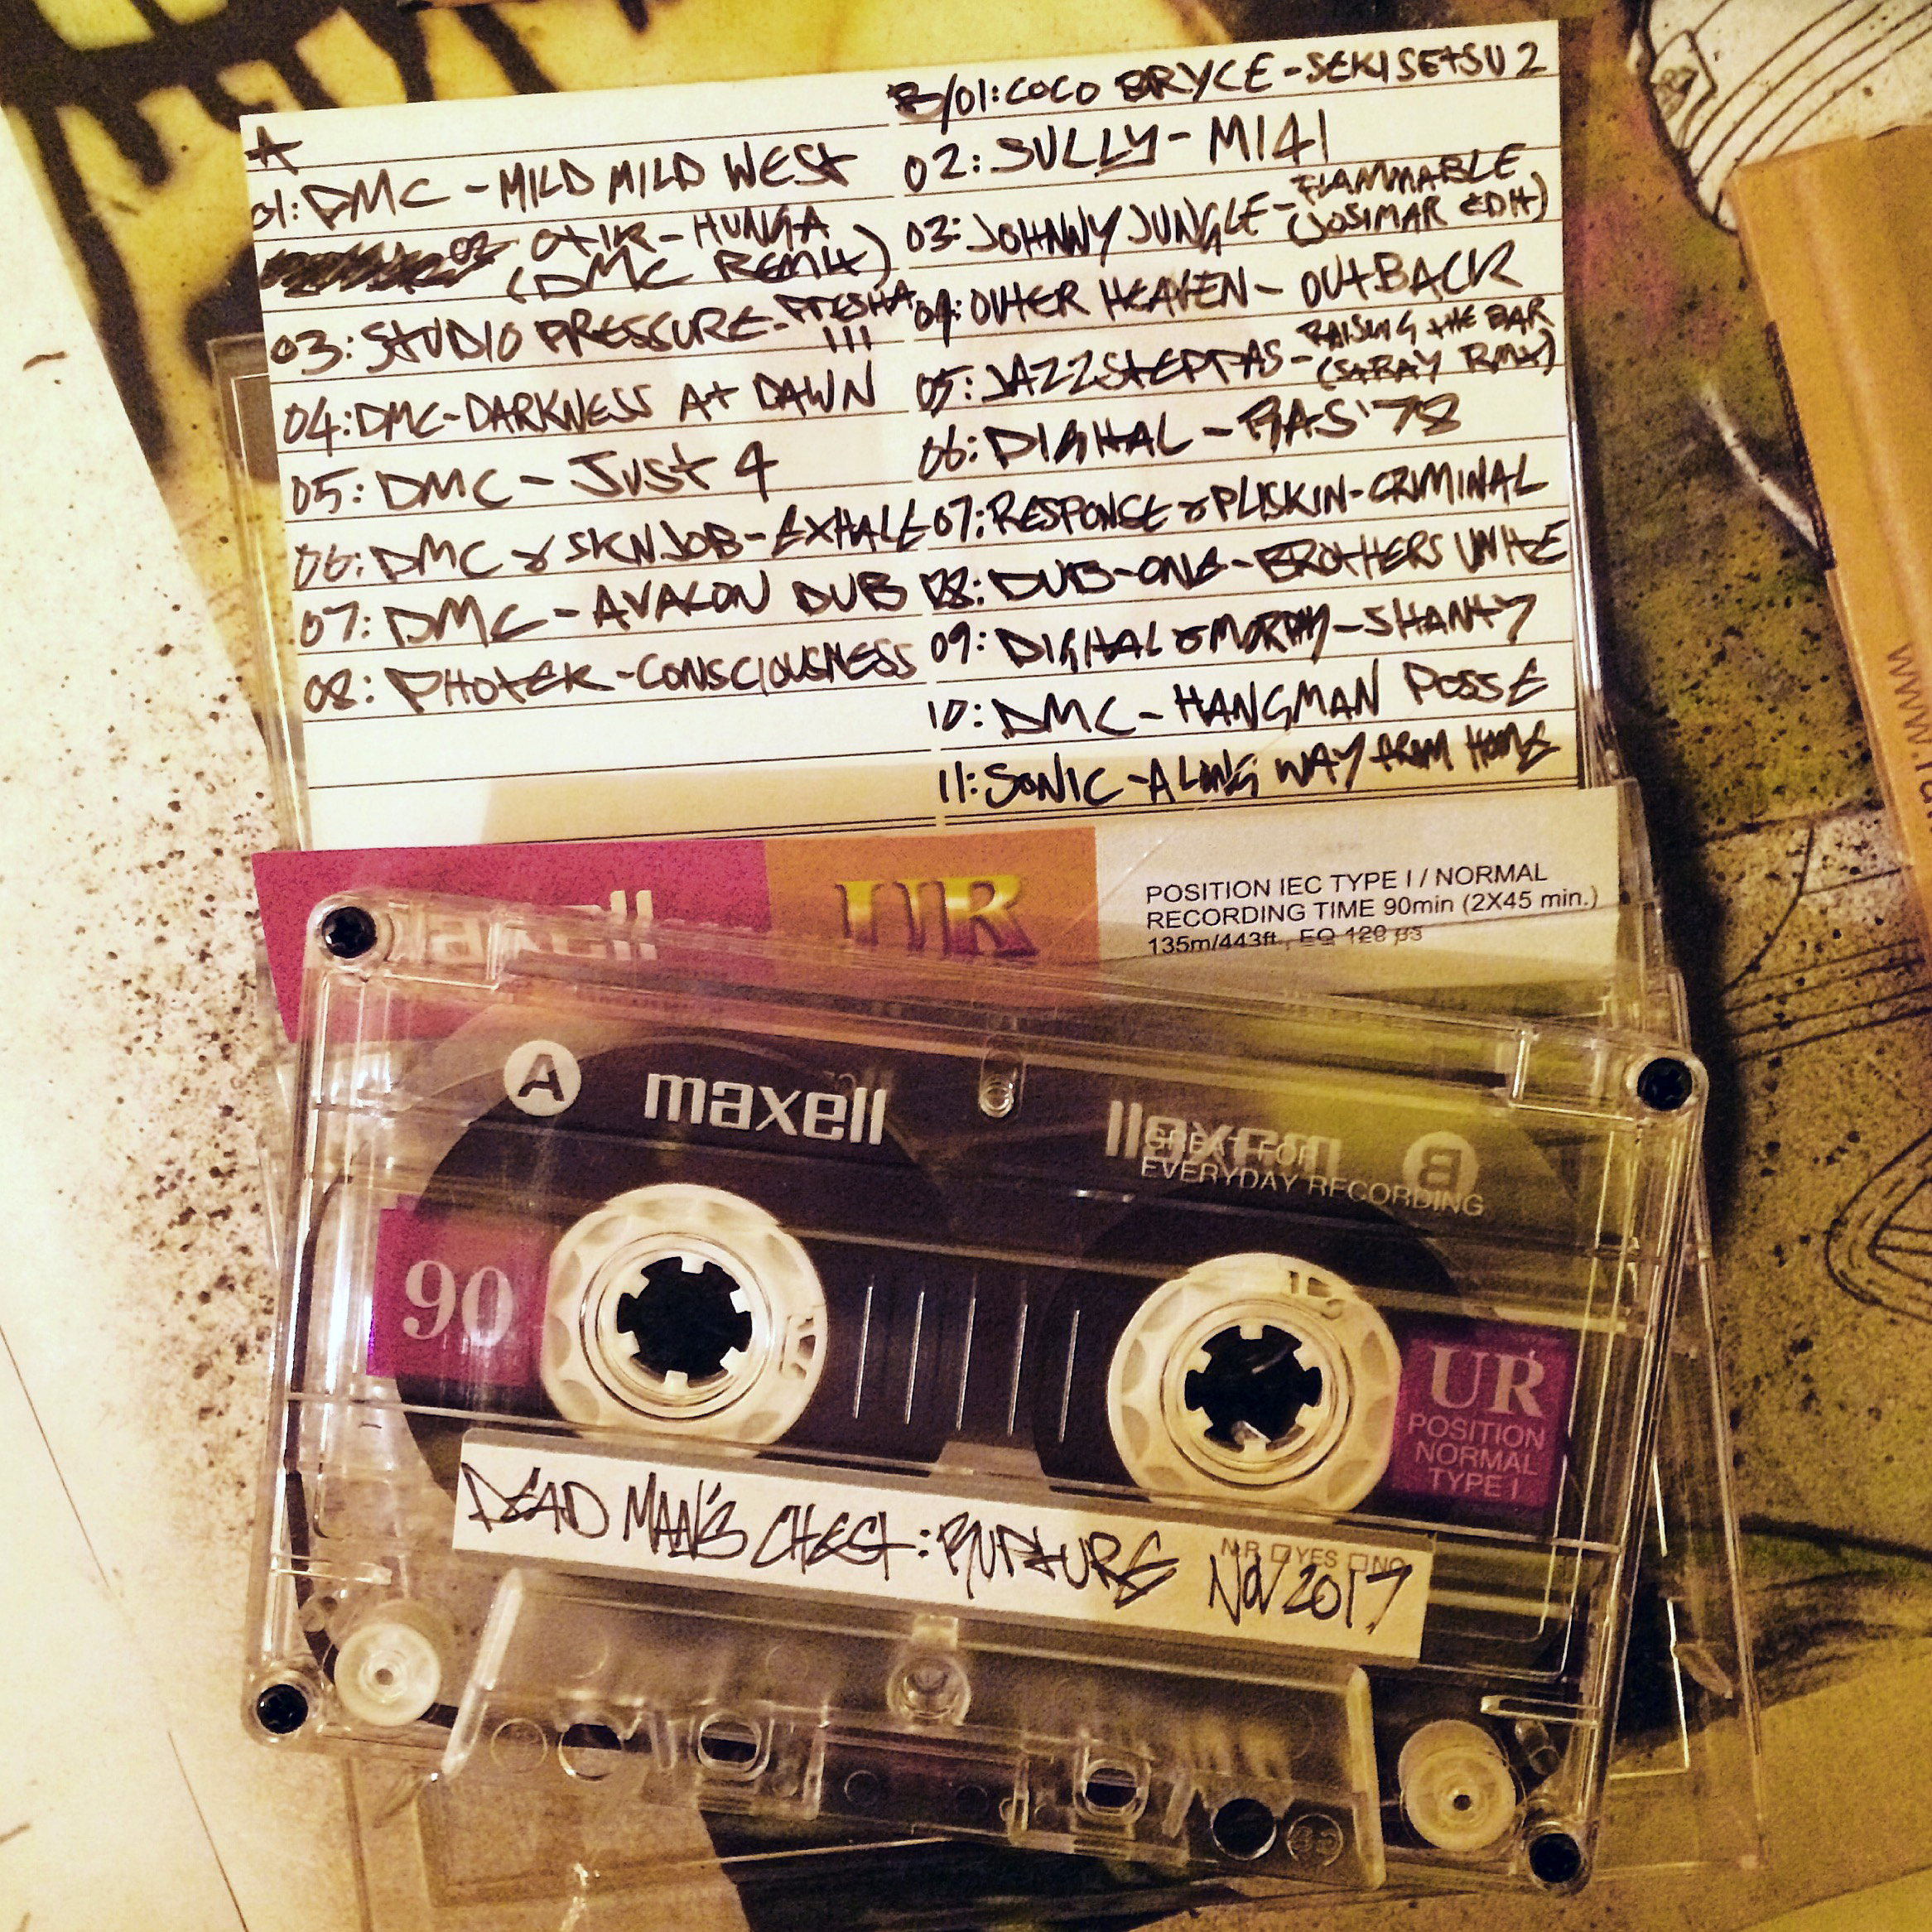 A
01: DMC - MILD MILD WEST
02 OTIK - HUNGA
(DMC REMIX)
03: STUDIO PRESSURE - PRESHA
III
04: DMC - DARKNESS AT DAWN
05: DMC - JUST 4
06: DMC & SKNJOB - EXHALE
07: DMC - AVALON DUB
08: PHOTEK - CONSCIOUSNESS
B/01: COCO BRYCE - SEKISETSU 2
02: SULLY - M141
03: JOHNNY JUNGLE - FLAMMABLE
(JOSIMAR EDIT)
04: OUTER HEAVEN - OUTBACK
05: JAZZSTEPPAS - RAISING THE BAR
(STRAY RMX)
06: DIGITAL - RAS '78
07: RESPONSE & PLISKIN - CRIMINAL
08: DUB-ONE - BROTHERS UNITE
09: DIGITAL & MORPHY - SHANTY
10: DMC - HANGMAN POSSE
11: SONIC - A LONG WAY FROM HOME
maxell UR
POSITION IEC TYPE I / NORMAL
RECORDING TIME 90min (2X45 min.)
135m/443ft, EQ 120 µs
A maxell
maxell B
GREAT FOR
EVERYDAY RECORDING
90
UR
POSITION
NORMAL
TYPE I
N.R. □YES □NO
DEAD MAN'S CHEST: RUPTURE NOV 2017
www